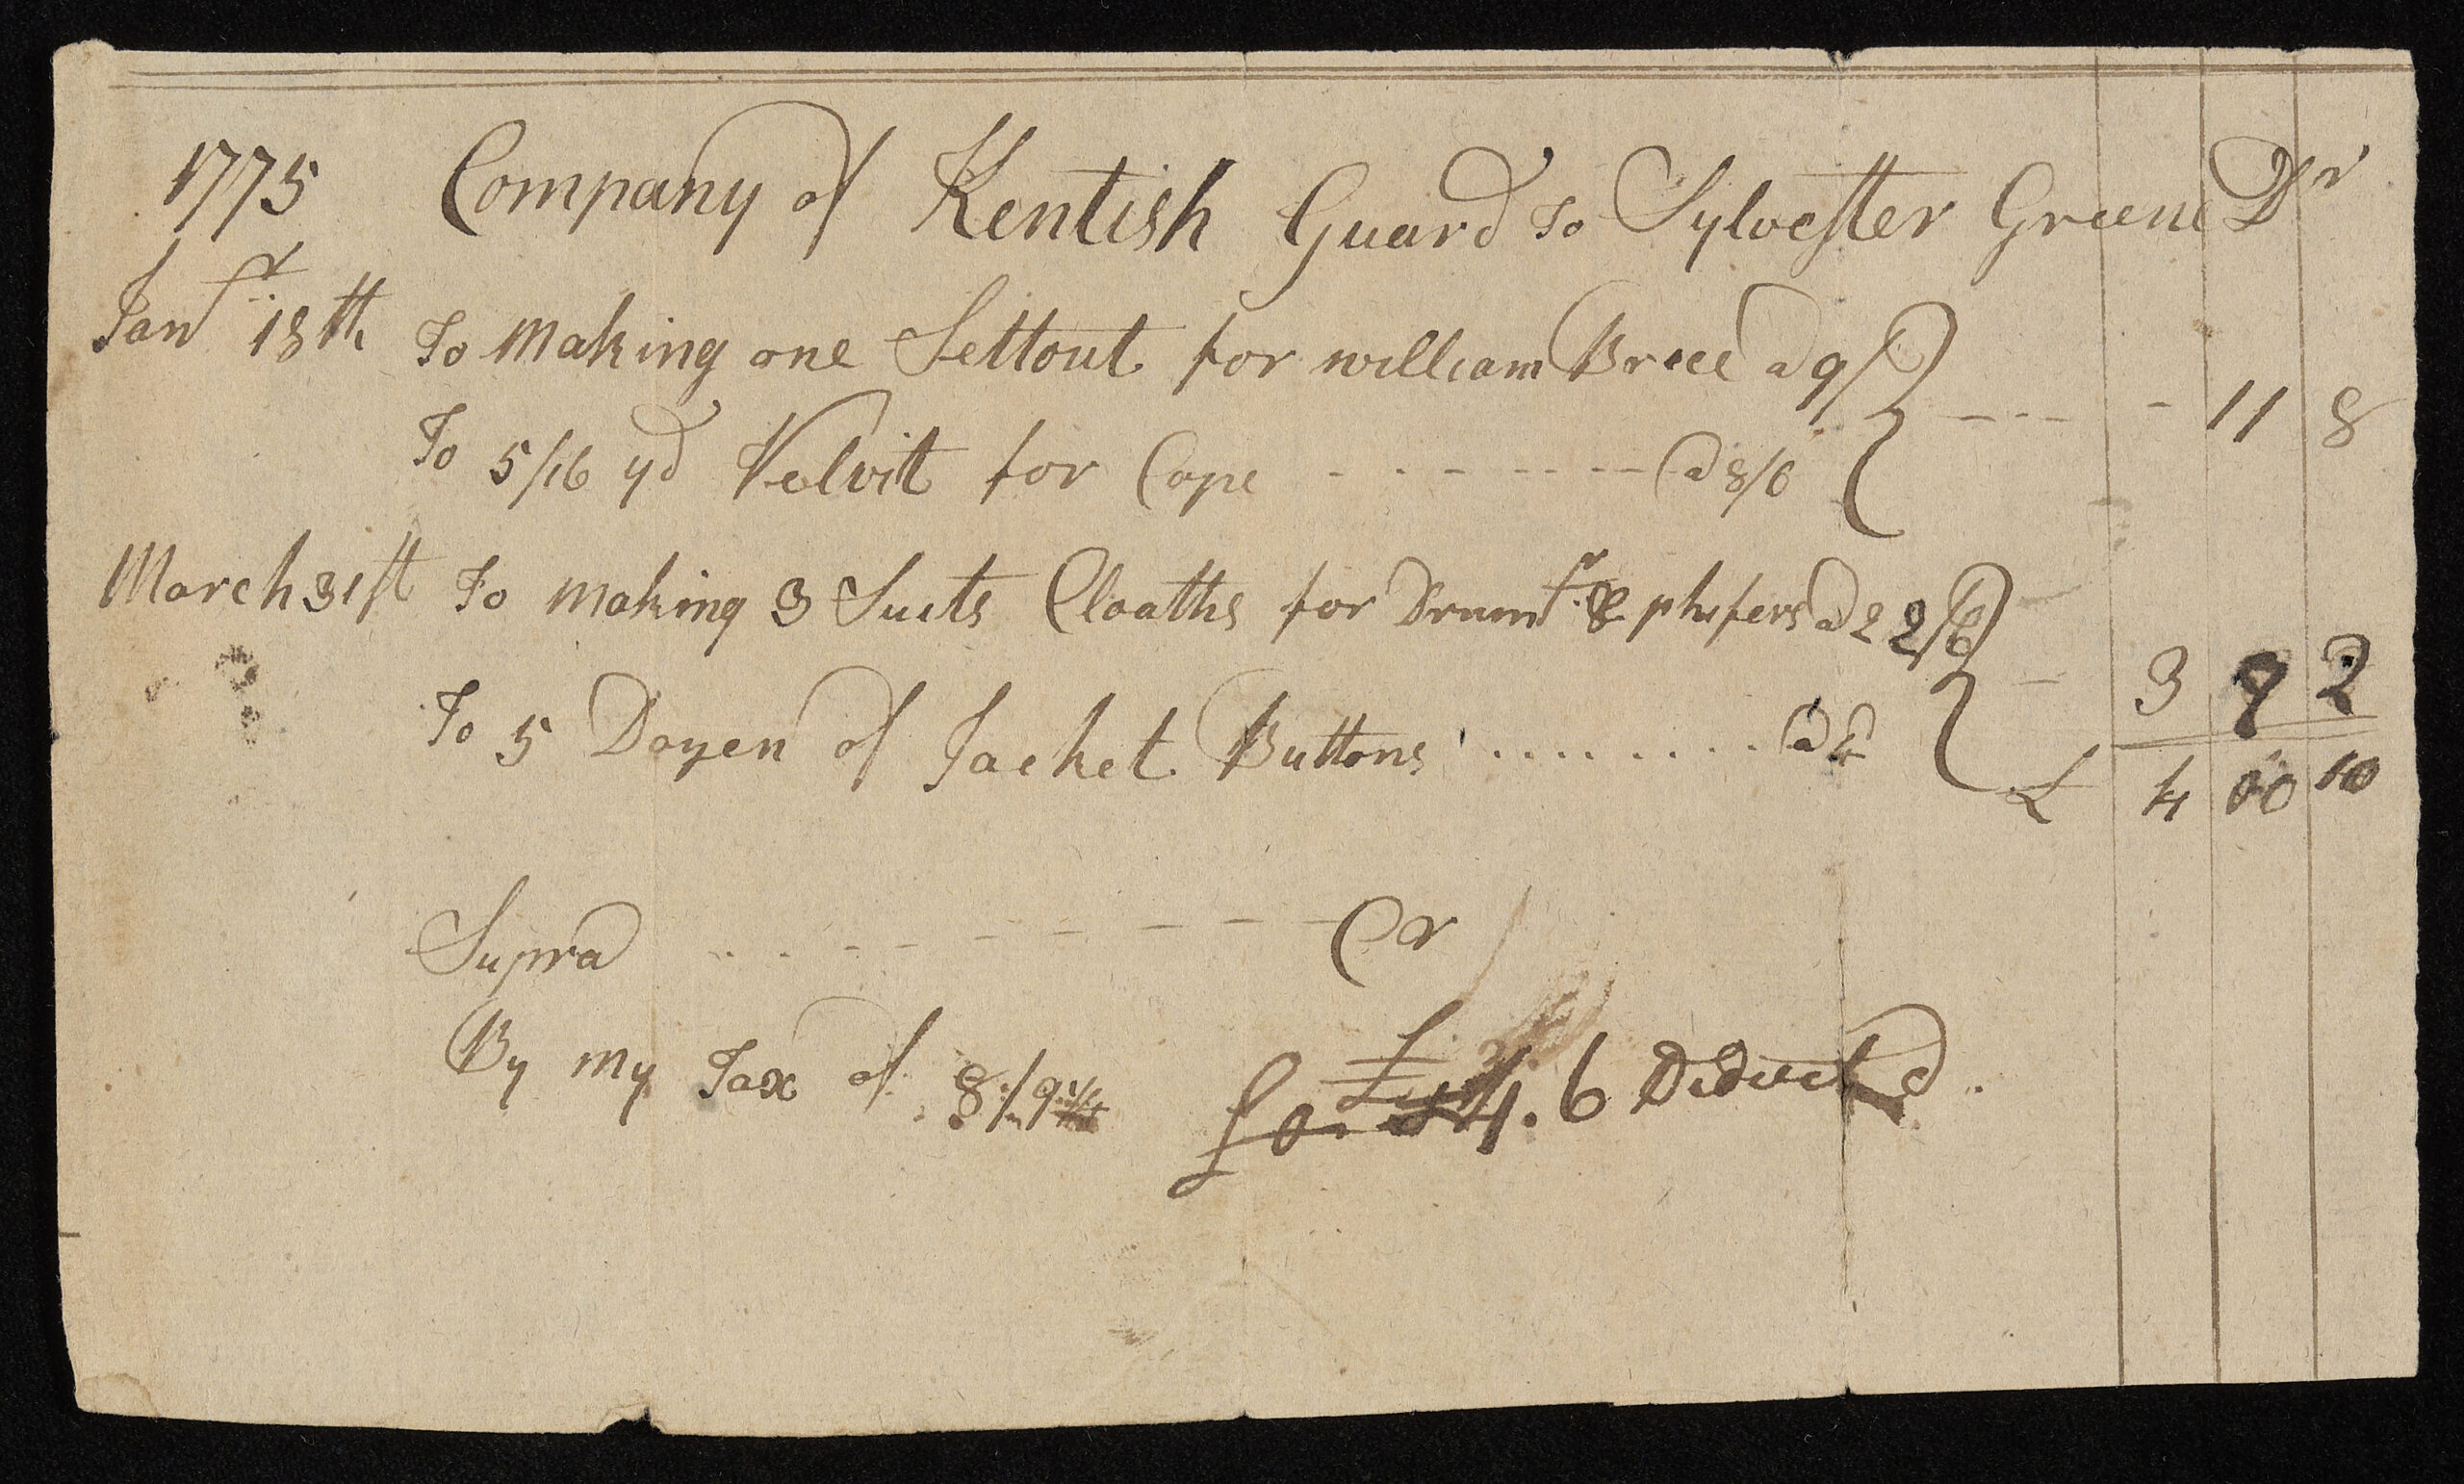 1775 Company of Kentish Guard To Sylvester Greene Dr
Jany 18th To Making one Settout for william Breed a 9/
To 5/16 yd Velvitt for Cape - - - - - - - a 8/6 - - - - 11 8
March 31st To Making 3 Suits Cloaths for Drumr & phifers a 22/6
To 5 Dozen of Jacket Buttons ........ a - 3 9 2
£ 4 00 10
Supra - - - - - - - - - Cr
By my Tax of 8/9
4.6 Deduct d.